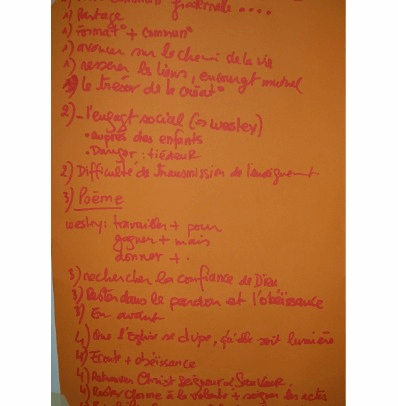 fraternelle ....
1) Partage
1) Format° + Commun°
1) avancer sur le chemin de la vie
1) resserrer les liens, encouragt mutuel
1) le trésor de la créat°
2) - l'engagt social (⇔ Wesley)
• auprès des enfants
• Danger : tiédeur
2) Difficulté de transmission de l'enseignement
3) Poème
Wesley : travailler + pour
gagner + mais
donner + .
3) rechercher la confiance de Dieu
3) Rester dans le pardon et l'obéissance
3) En avant
4) Que l'Eglise se dupe, qu'elle soit lumière
4) Ecoute + obéissance
4) Retrouver Christ Seigneur et Sauveur.
4) Rester à la volonté + soigner les actes